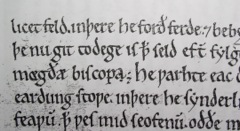 licet feld. inþere he ford ferde; ⁊ beb
þe nu git todęge is ꝥ feld eft
mægða biscopa; he þarhte eac
eardung stope. inþere he synderl
ꝥ þes mid seofenū. oððe m